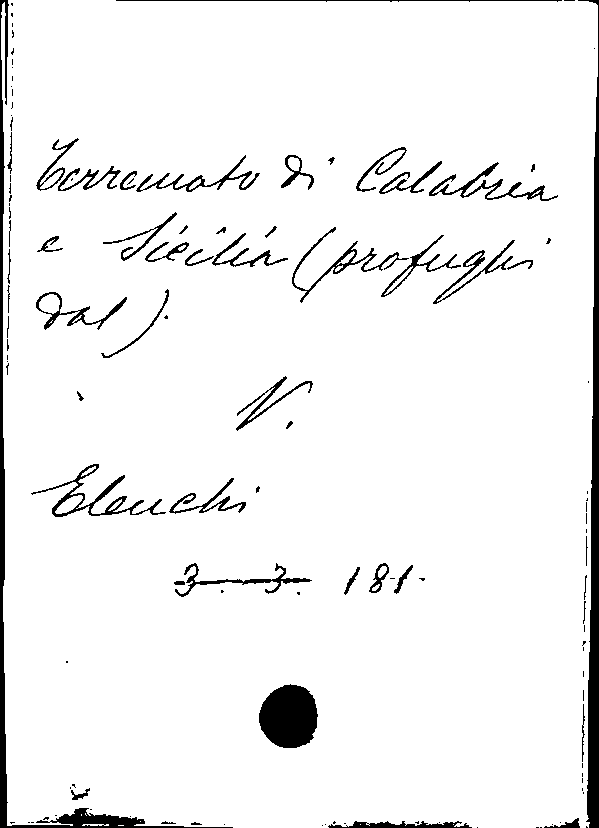 Terremoto di Calabria
e Sicilia (profughi
dal).
V.
Elenchi
3. 3. 181.